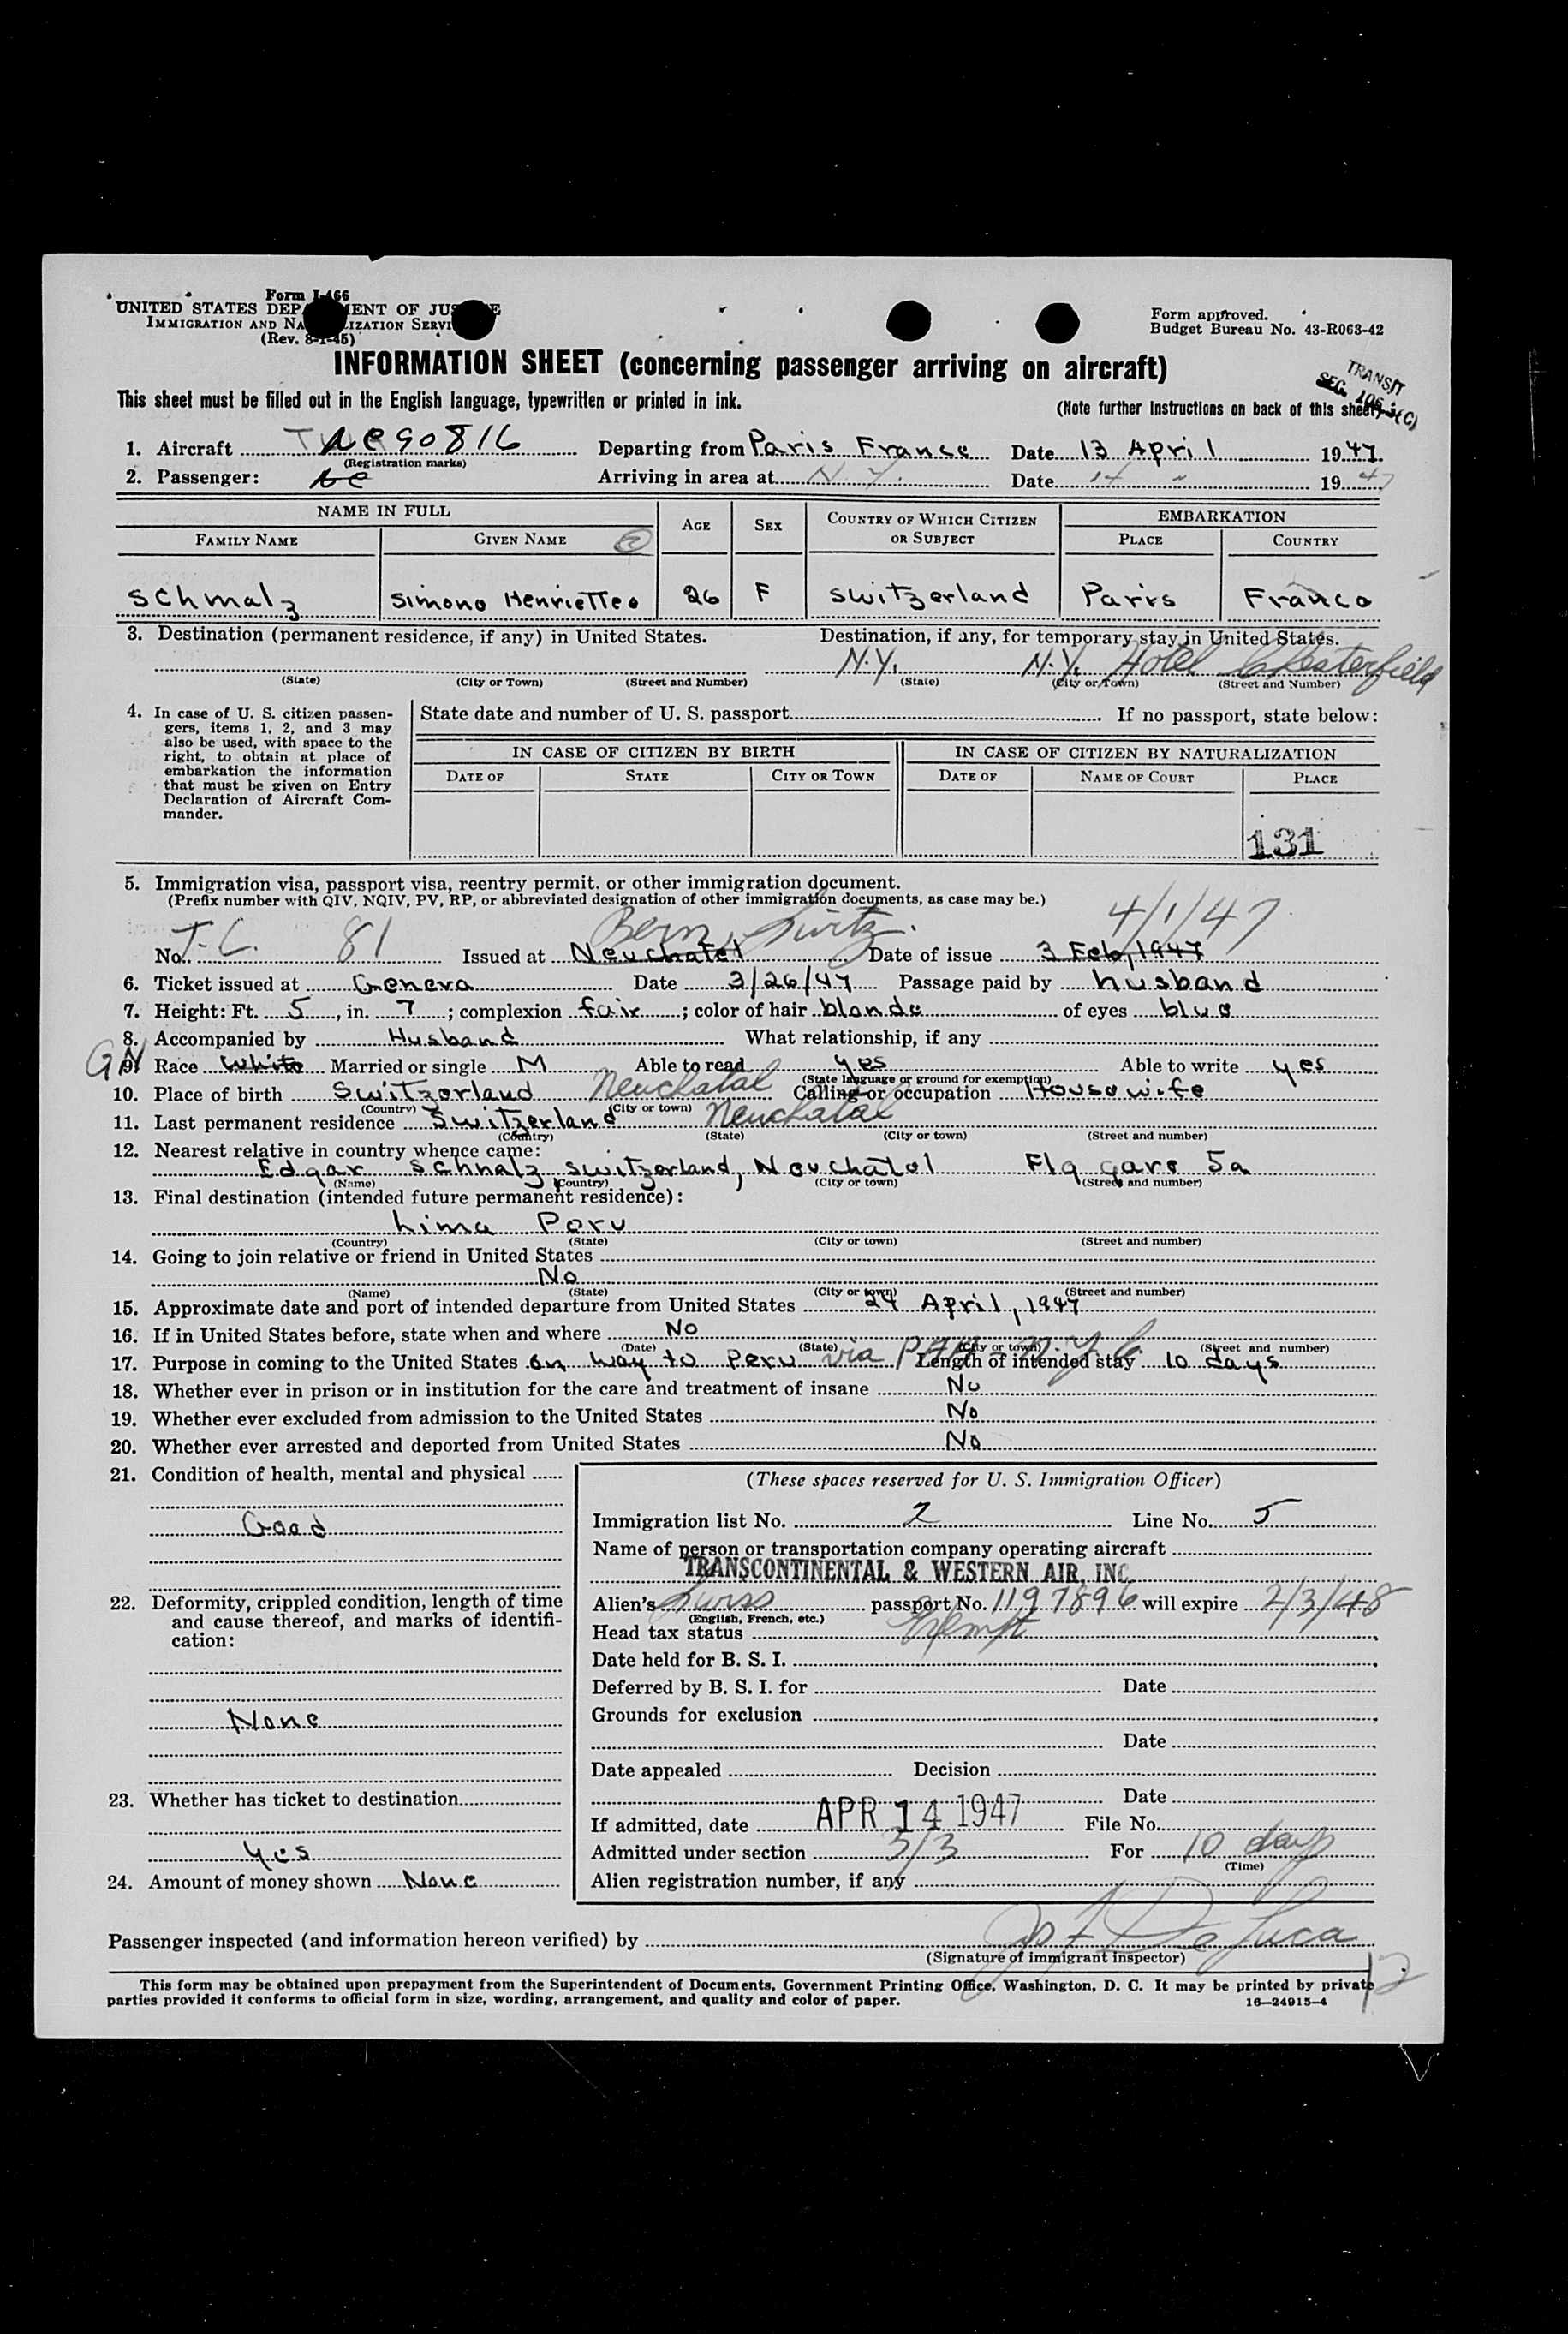 Form I-466
UNITED STATES DEPARTMENT OF JUSTICE
IMMIGRATION AND NATURALIZATION SERVICE
(Rev. 8-1-45)
Form approved.
Budget Bureau No. 43-R063-42
INFORMATION SHEET (concerning passenger arriving on aircraft)
TRANSIT
SEC. (C)
This sheet must be filled out in the English language, typewritten or printed in ink.
(Note further instructions on back of this sheet)
1. Aircraft NC90816 Departing from Paris France Date 13 April 1947
(Registration marks)
2. Passenger: Arriving in area at N.Y. Date 14 " 1947
NAME IN FULL AGE SEX COUNTRY OF WHICH CITIZEN OR SUBJECT EMBARKATION
FAMILY NAME GIVEN NAME PLACE COUNTRY
Schmalz Simone Henriette 26 F Switzerland Paris France
3. Destination (permanent residence, if any) in United States. Destination, if any, for temporary stay in United States.
N.Y. N.Y. Hotel Chesterfield
(State) (City or Town) (Street and Number) (State) (City or Town) (Street and Number)
4. In case of U. S. citizen passengers, items 1, 2, and 3 may also be used, with space to the right, to obtain at place of embarkation the information that must be given on Entry Declaration of Aircraft Commander.
State date and number of U. S. passport If no passport, state below:
IN CASE OF CITIZEN BY BIRTH IN CASE OF CITIZEN BY NATURALIZATION
DATE OF STATE CITY OR TOWN DATE OF NAME OF COURT PLACE
131
5. Immigration visa, passport visa, reentry permit. or other immigration document.
(Prefix number with QIV, NQIV, PV, RP, or abbreviated designation of other immigration documents, as case may be.)
Bern, Switz. 4/1/47
No. T-C. 81 Issued at Neuchatel Date of issue 3 Feb, 1947
6. Ticket issued at Geneva Date 3/26/47 Passage paid by husband
7. Height: Ft. 5, in. 7; complexion fair; color of hair blonde of eyes blue
8. Accompanied by Husband What relationship, if any
9. Race White Married or single M Able to read yes Able to write yes
(State language or ground for exemption)
10. Place of birth Switzerland Neuchatal Calling or occupation Housewife
(Country) (City or town)
11. Last permanent residence Switzerland Neuchatal
(Country) (State) (City or town) (Street and number)
12. Nearest relative in country whence came:
Edgar Schnalz Switzerland, Neuchatel Flg gare 5a
(Name) (Country) (City or town) (Street and number)
13. Final destination (intended future permanent residence):
Lima Peru
(Country) (State) (City or town) (Street and number)
14. Going to join relative or friend in United States
No
(Name) (State) (City or town) (Street and number)
15. Approximate date and port of intended departure from United States 24 April, 1947
16. If in United States before, state when and where No
(Date) (State) (City or town) (Street and number)
17. Purpose in coming to the United States on way to Peru via Length of intended stay 10 days
18. Whether ever in prison or in institution for the care and treatment of insane No
19. Whether ever excluded from admission to the United States No
20. Whether ever arrested and deported from United States No
21. Condition of health, mental and physical
Good
22. Deformity, crippled condition, length of time and cause thereof, and marks of identification:
None
23. Whether has ticket to destination
Yes
24. Amount of money shown None
(These spaces reserved for U. S. Immigration Officer)
Immigration list No. 2 Line No. 5
Name of person or transportation company operating aircraft
TRANSCONTINENTAL & WESTERN AIR, INC.
Alien's Swiss passport No. 1197896 will expire 2/3/48
(English, French, etc.)
Head tax status Exempt
Date held for B. S. I.
Deferred by B. S. I. for Date
Grounds for exclusion
Date
Date appealed Decision
Date
If admitted, date APR 14 1947 File No.
Admitted under section 3/3 For 10 days
(Time)
Alien registration number, if any
Passenger inspected (and information hereon verified) by Jos F De Luca
(Signature of immigrant inspector)
This form may be obtained upon prepayment from the Superintendent of Documents, Government Printing Office, Washington, D. C. It may be printed by private
parties provided it conforms to official form in size, wording, arrangement, and quality and color of paper.
16—24915-4